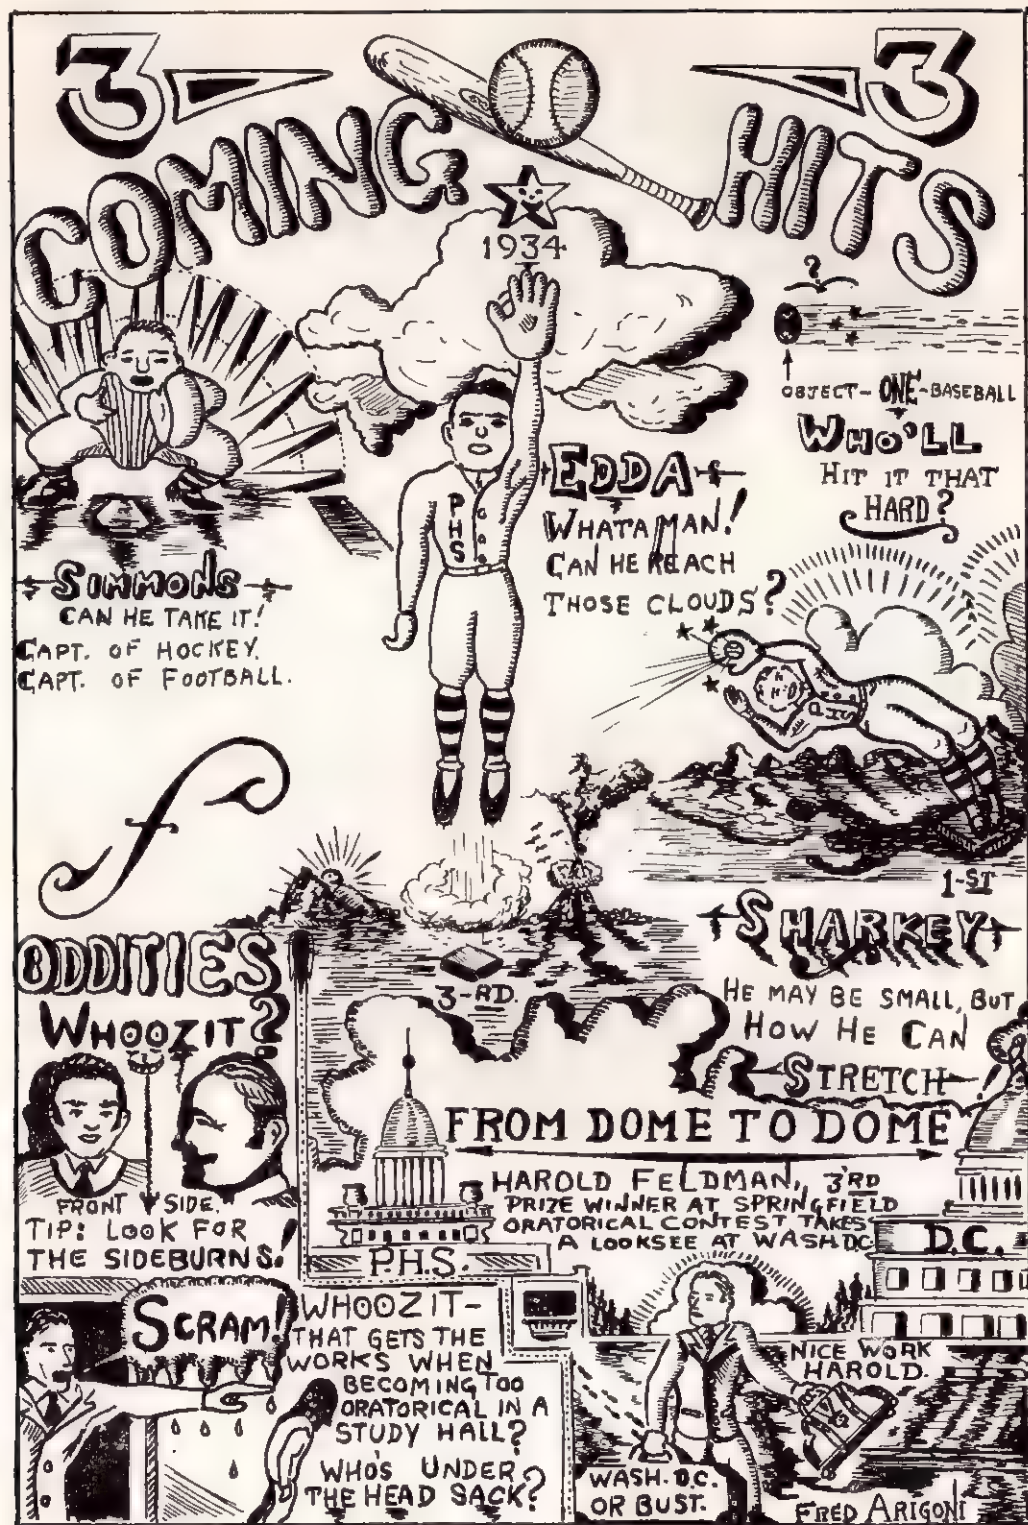 3 3
COMING HITS
1934
?
OBJECT - ONE - BASEBALL
WHO'LL
HIT IT THAT
HARD?
EDDA
WHATA MAN!
CAN HE REACH
THOSE CLOUDS?
PHS
SIMMONS
CAN HE TAKE IT!
CAPT. OF HOCKEY.
CAPT. OF FOOTBALL.
1-ST
SHARKEY
HE MAY BE SMALL, BUT
HOW HE CAN
STRETCH!
3-RD.
ODDITIES
WHOOZIT?
FRONT SIDE.
TIP: LOOK FOR
THE SIDEBURNS!
FROM DOME TO DOME
HAROLD FELDMAN, 3'RD
PRIZE WINNER AT SPRINGFIELD
ORATORICAL CONTEST TAKES
A LOOKSEE AT WASH. D.C.
P.H.S.
D.C.
SCRAM!
WHOOZIT-
THAT GETS THE
WORKS WHEN
BECOMING TOO
ORATORICAL IN A
STUDY HALL?
WHO'S UNDER
THE HEAD SACK?
NICE WORK
HAROLD.
WASH. D.C.
OR BUST.
FRED ARIGONI